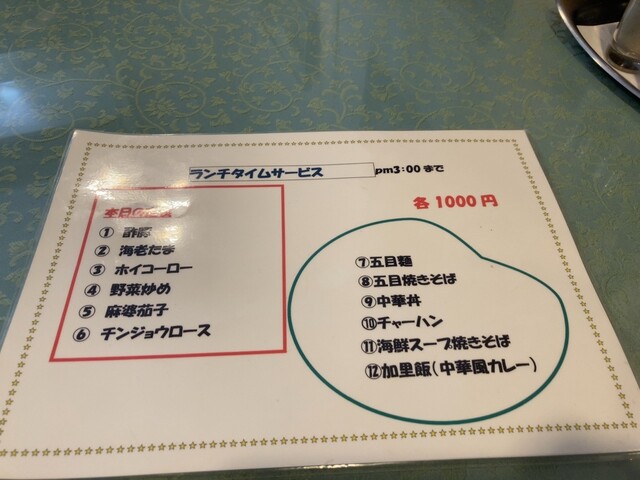 ランチタイムサービス
pm3:00 まで
各1000円
本日の
① 酢豚
② 海老たま
③ ホイコーロー
④ 野菜炒め
⑤ 麻婆茄子
⑥ チンジョウロース
⑦五目麺
⑧五目焼きそば
⑨中華丼
⑩チャーハン
⑪海鮮スープ焼きそば
⑫加里飯(中華風カレー)